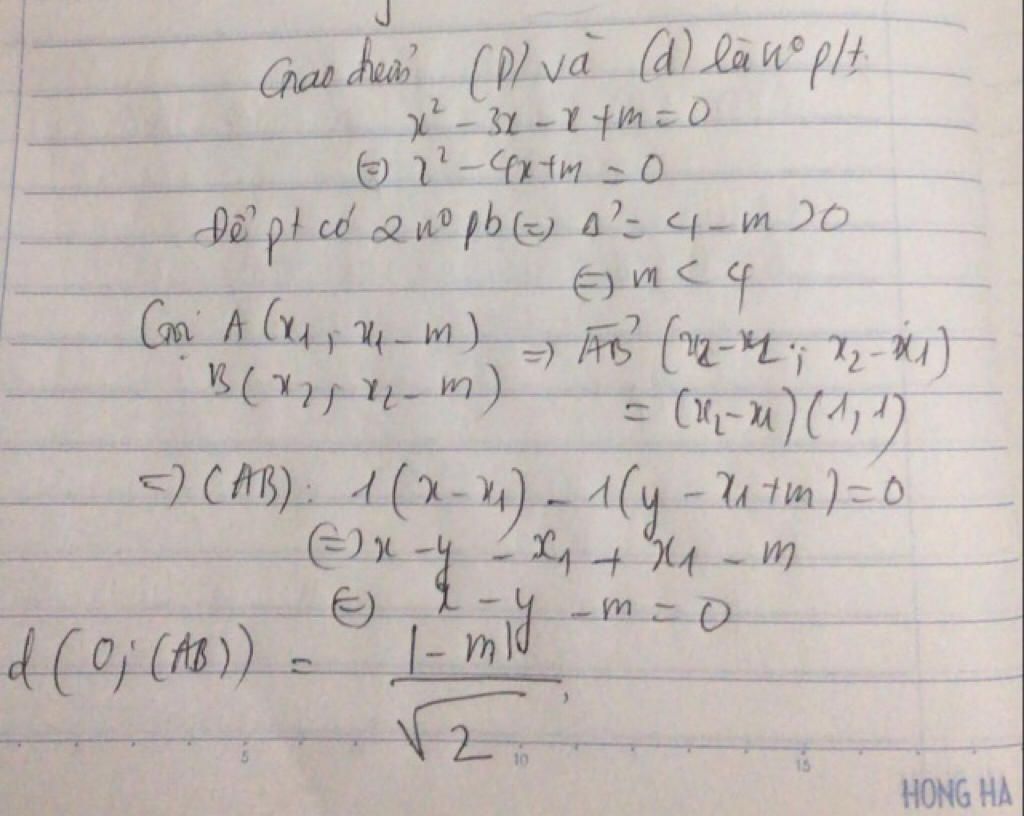 Giao điểm (P) và (d) là n⁰ p/t
x² - 3x - x + m = 0
⇔ x² - 4x + m = 0
Để pt có 2 n⁰ pb ⇔ Δ' = 4 - m > 0
⇔ m < 4
Gọi A (x₁ ; x₁ - m)
B (x₂ ; x₂ - m) ⇒ AB⃗ (x₂ - x₁ ; x₂ - x₁)
= (x₂ - x₁) (1, 1)
⇒ (AB) : 1(x - x₁) - 1(y - x₁ + m) = 0
⇔ x - y - x₁ + x₁ - m
⇔ x - y - m = 0
d (O; (AB)) = |-m| / √2 ,
5 10 15
HONG HA